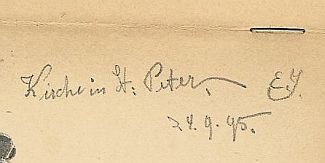 Kirche in St. Peter. EJ.
24.9.95.